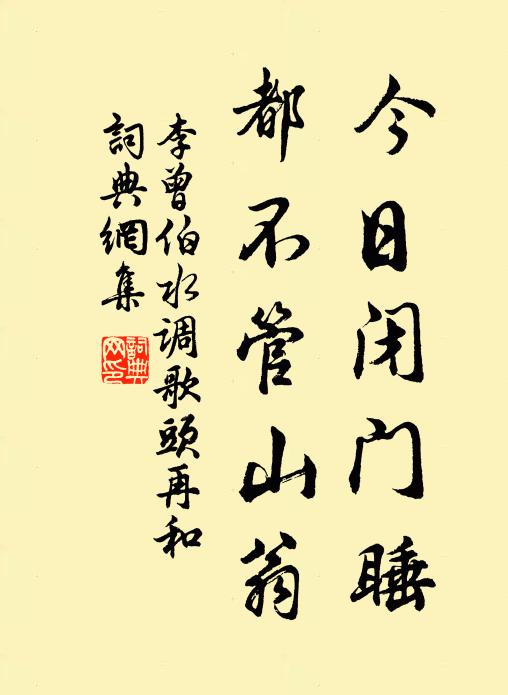 今日闭门睡
都不管山翁
李曾伯水调歌頭再和
詞典網集
詞典网印